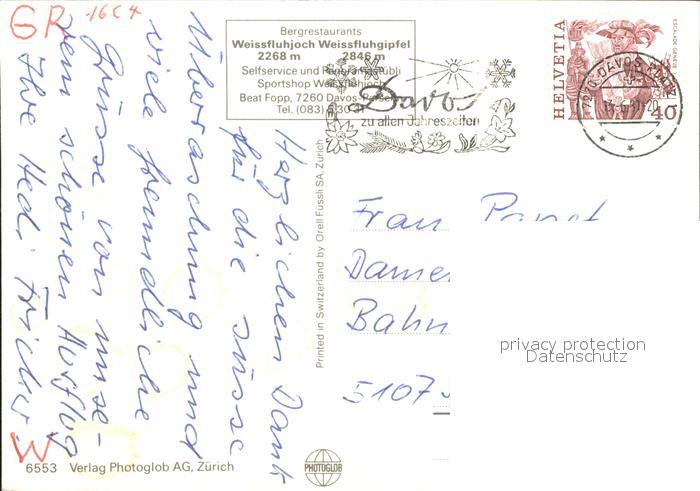 GR -16C4
Bergrestaurants
Weissfluhjoch Weissfluhgipfel
2268 m 2846 m
Selfservice und
Sportshop
Beat Fopp, 7260 Davos-
Tel. (083)
Davos
zu allen Jahreszeiten
HELVETIA
ESCALADE GENÈVE
40
7270 DAVOS PLATZ
Herzlichen Dank
für die süsse
Überraschung und
viele freundliche
Grüsse von unse-
rem schönen Ausflug
Ihre Hedi Fricker
W
Printed in Switzerland by Orell Füssli SA, Zürich
Frau
Damen
Bahn
5107
privacy protection
Datenschutz
6553 Verlag Photoglob AG, Zürich
PHOTOGLOB